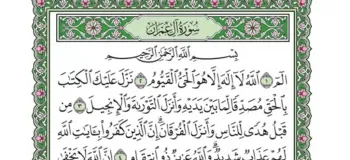 سُورَةُ آلِ عِمۡرَانَ
بِسۡمِ ٱللَّهِ ٱلرَّحۡمَٰنِ ٱلرَّحِيمِ
الٓمٓ ١ ٱللَّهُ لَآ إِلَٰهَ إِلَّا هُوَ ٱلۡحَيُّ ٱلۡقَيُّومُ ٢ نَزَّلَ عَلَيۡكَ ٱلۡكِتَٰبَ
بِٱلۡحَقِّ مُصَدِّقٗا لِّمَا بَيۡنَ يَدَيۡهِ وَأَنزَلَ ٱلتَّوۡرَىٰةَ وَٱلۡإِنجِيلَ ٣ مِن
قَبۡلُ هُدٗى لِّلنَّاسِ وَأَنزَلَ ٱلۡفُرۡقَانَۗ إِنَّ ٱلَّذِينَ كَفَرُواْ بِـَٔايَٰتِ ٱللَّهِ
لَهُمۡ عَذَابٞ شَدِيدٞۗ وَٱللَّهُ عَزِيزٞ ذُو ٱنتِقَامٍ ٤ إِنَّ ٱللَّهَ لَا يَخۡفَىٰ